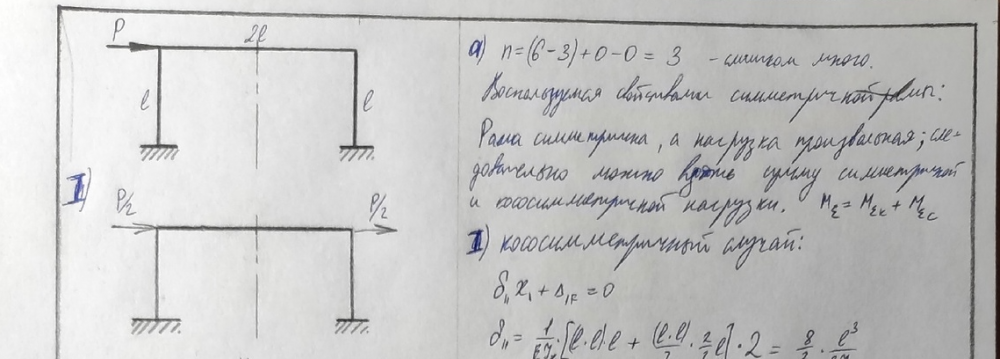 P
2l
l
l
I)
P/2
P/2
а) n=(6-3)+0-0= 3 - слишком много.
Воспользуемся свойствами симметричной рамы:
Рама симметрична, а нагрузка произвольная; сле-
довательно можно взять сумму симметричной
и кососимметричной нагрузки. M_Σ = M_Σк + M_Σс
I) кососимметричный случай:
δ₁₁ x₁ + Δ₁F = 0
δ₁₁ = 1/EJₓ · [l·l·l + (l·l)/2 · 2/3 l] · 2 = 8/3 · l³